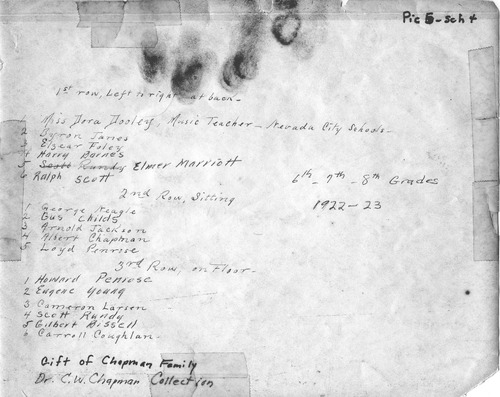 Pic 5-sch 4
1st row, Left to right at back-
Miss Dora Dooley, Music Teacher - Nevada City Schools-
2 Byron James
3 Elzear Foley
4 Harry Barnes
Scott Rundy Elmer Marriott
6 Ralph Scott
6th - 7th - 8th Grades
2nd Row, Sitting
1922-23
1 George Neagle
2 Gus Childs
3 Arnold Jackson
4 Albert Chapman
5 Loyd Penrose
3rd Row, on Floor-
1 Howard Penrose
2 Eugene Young
3 Cameron Larsen
4 Scott Rundy
5 Gilbert Bissell
6 Carroll Coughlan-
Gift of Chapman Family
Dr. C.W. Chapman Collection